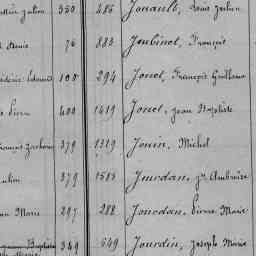 Julien 350 286 Jouault, Louis Julien
Marie 76 883 Joubinot, François
Edouard 100 294 Jouet, François Guillaume
Pierre 400 1419 Jouet, Jean Baptiste
Zacharie 379 1319 Jouin, Michel
Julien 379 1585 Jourdan, Jn Ambroise
Marie 297 288 Jourdan, Pierre Marie
Baptiste 349 649 Jourdin, Joseph Marie